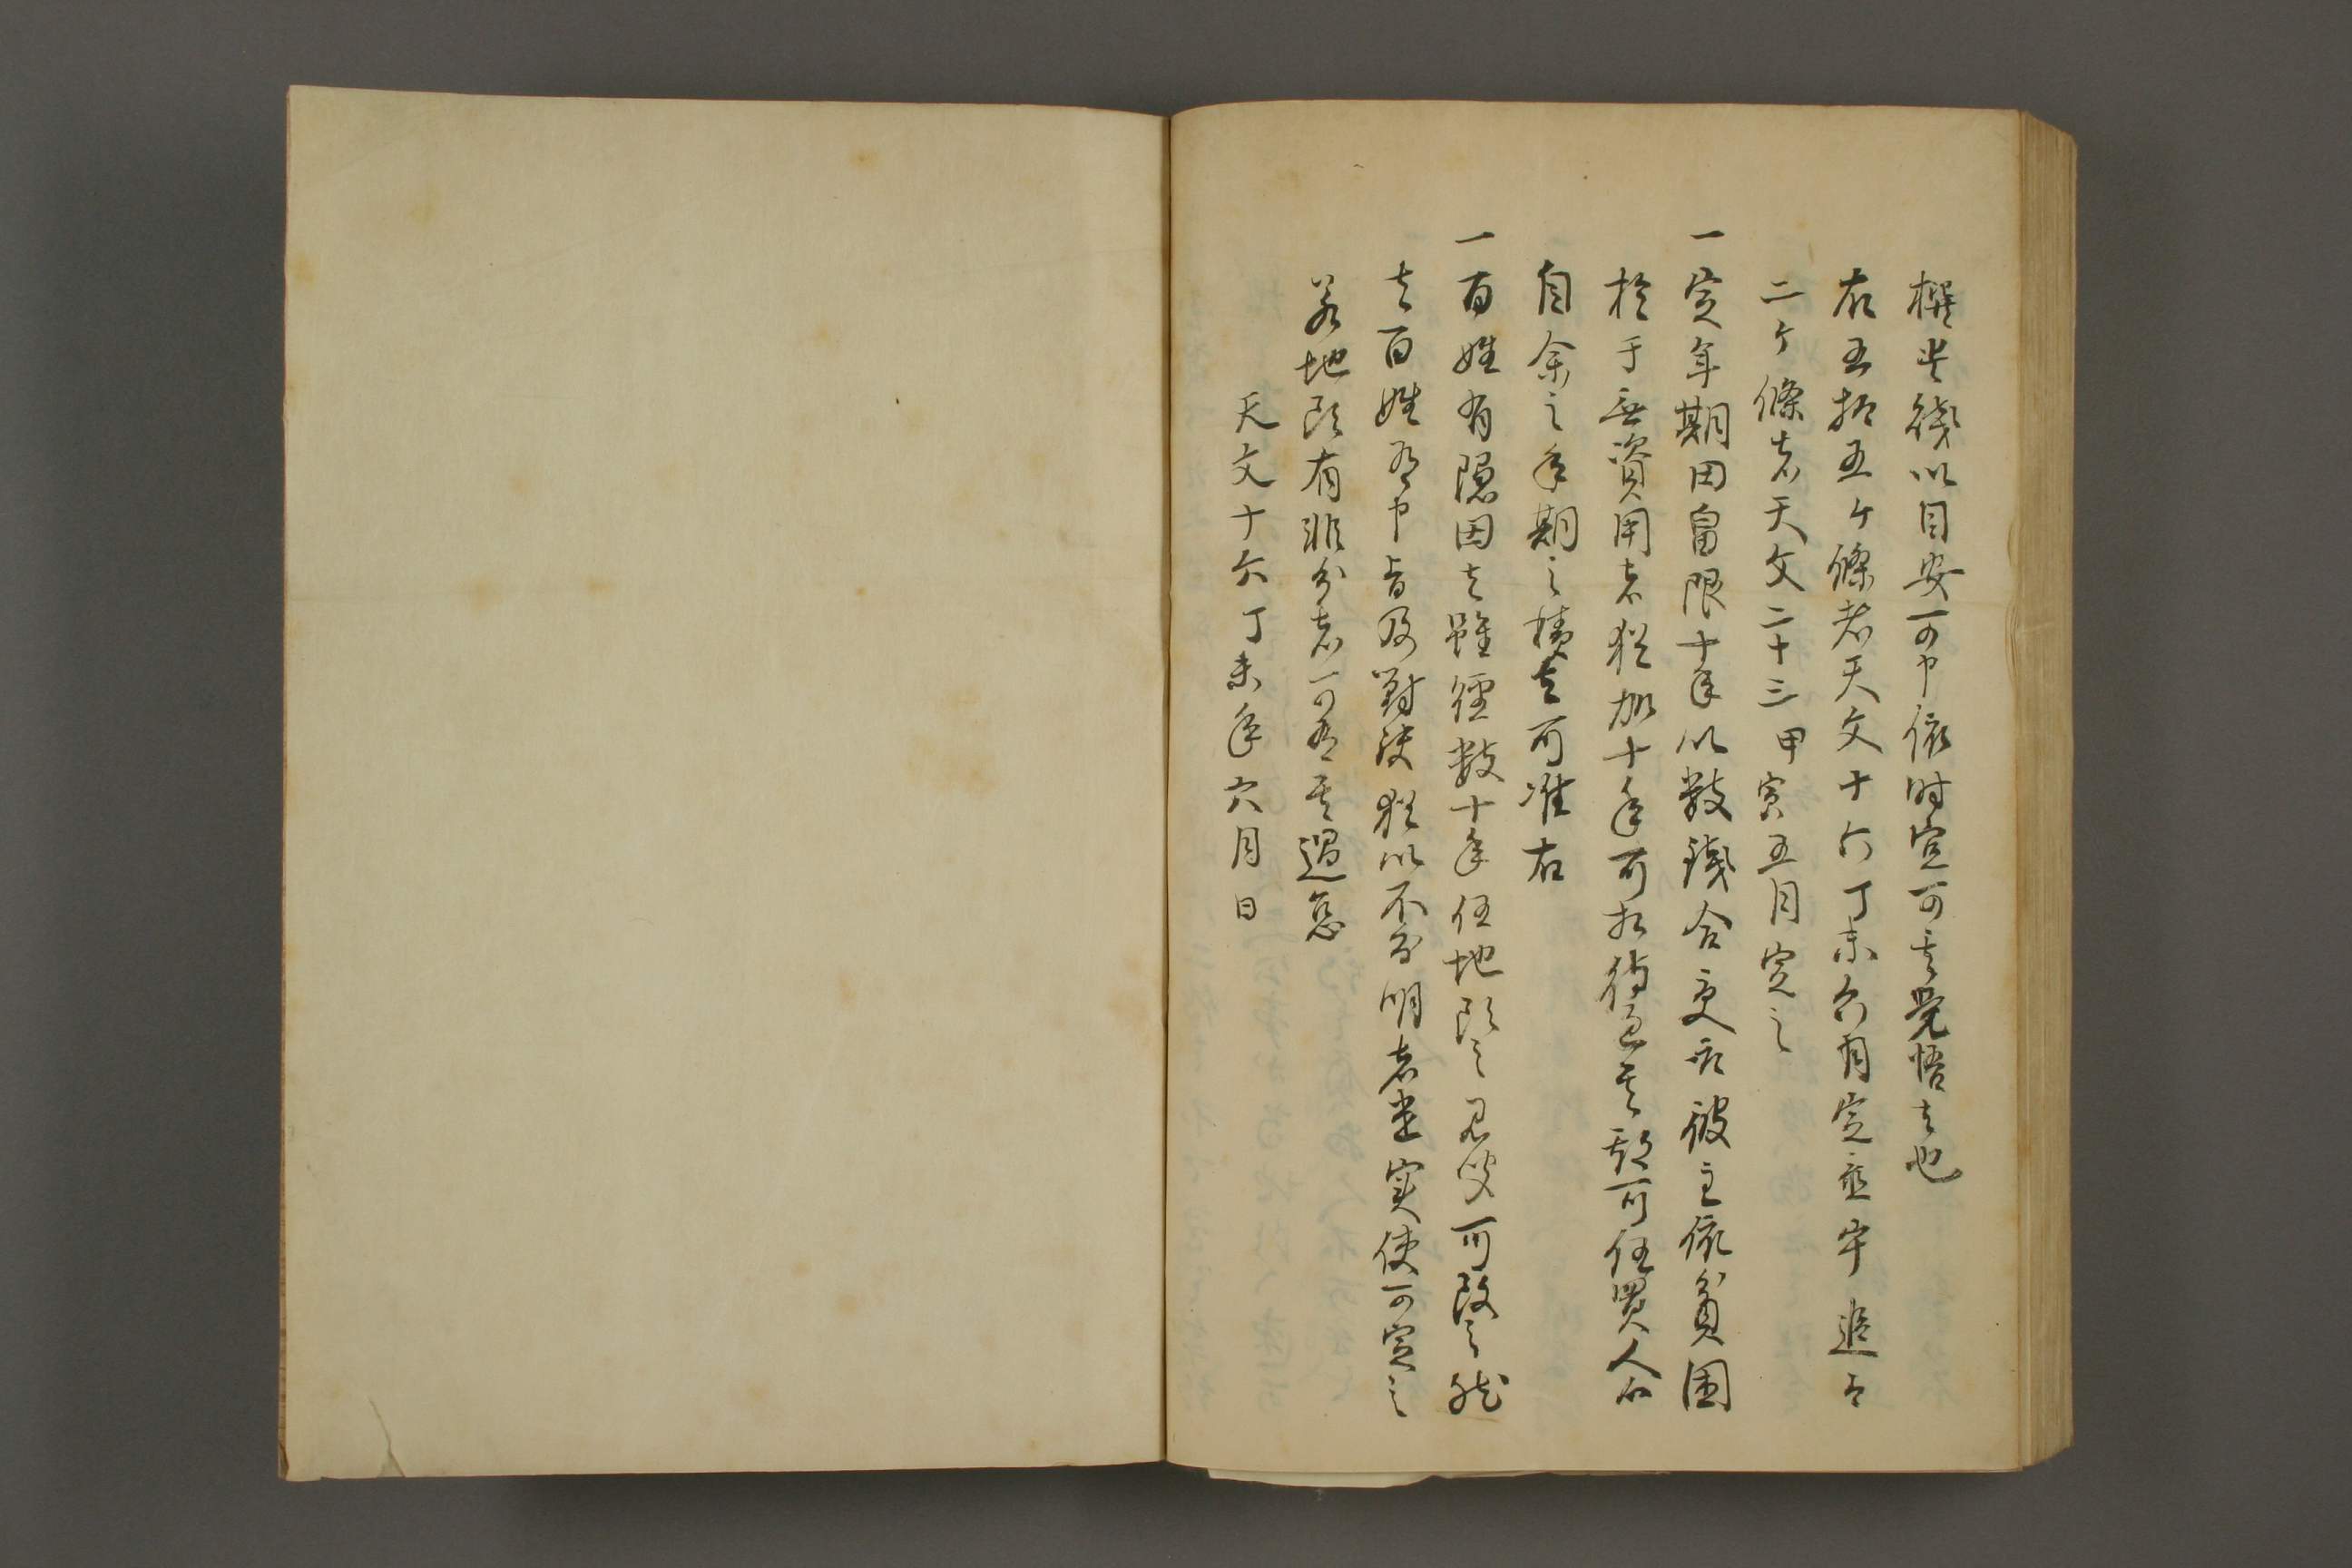 撰貴賤以目安可申依時宜可其覚悟者也
右五拾五ヶ條者天文十六丁未六月定置畢追而
二ヶ條者天文二十三甲寅五月定之
一定年期田畠限十年以敷銭合交取彼主依貧困
於于無資用者猶加十年可相待過其期可任買人心
自余之年期之積者可准右
一百姓有隠田者雖経数十年任地頭之見聞可改之然
者百姓有申旨及對決猶以不分明者遣実使可定之
若地頭有非分者可有其過怠
天文十六丁未年六月日